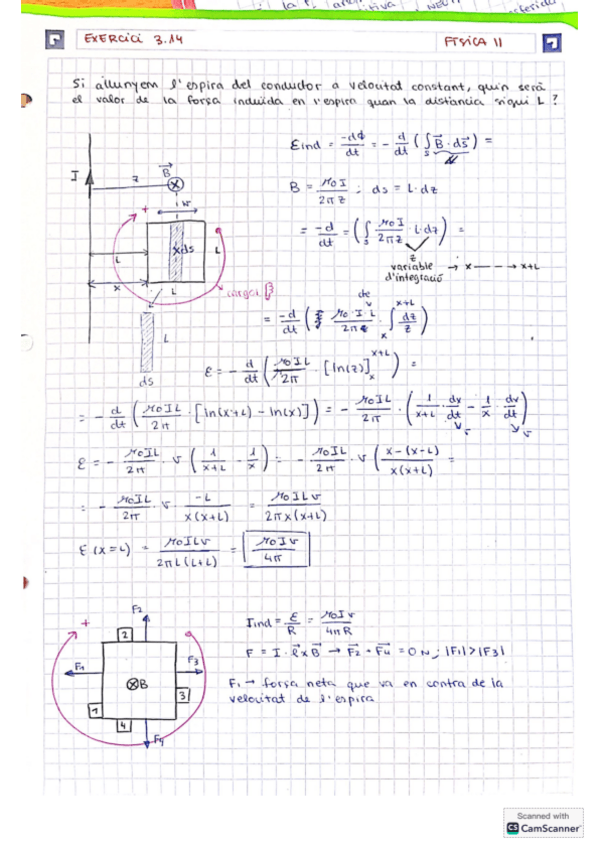 EXERCICI 3.14
FÍSICA II
Si allunyem l'espira del conductor a velocitat constant, quin serà
el valor de la força induïda en l'espira quan la distància sigui L?
Eind = -dϕ/dt = - d/dt (∫s B⃗ · ds⃗) =
I
z
B⃗
B = μ0 I / 2π z ; ds = L · dz
+
ds
L
= -d/dt = (∫s μ0 I / 2π z · L · dz) =
z
variable d'integració → x ---- → x+L
L
x
L
L
ds
= -d/dt ( μ0 · I · L / 2π · ∫ x x+L dz/z )
ε = - d/dt ( μ0 I L / 2π · [ln(z)] x x+L ) =
= - d/dt ( μ0 I L / 2π · [ln(x+L) - ln(x)] ) = - μ0 I L / 2π · ( 1/x+L · dx/dt - 1/x · dv/dt )
v v
ε = - μ0 I L / 2π · v ( 1/x+L - 1/x ) = - μ0 I L / 2π · v ( x-(x-L) / x(x+L) ) =
= - μ0 I L / 2π · v · -L / x(x+L) = μ0 I L v / 2π x(x+L)
ε (x=L) = μ0 I L v / 2π L(L+L) = μ0 I v / 4π
Iind = ε/R = μ0 I v / 4π R
F = I · l⃗ x B⃗ → F2⃗ + F4⃗ = 0 N ; |F1| > |F3|
F1 → força neta que va en contra de la
velocitat de l'espira
+
F2
2
F1
F3
B
3
1
4
F4
Scanned with
CS CamScanner